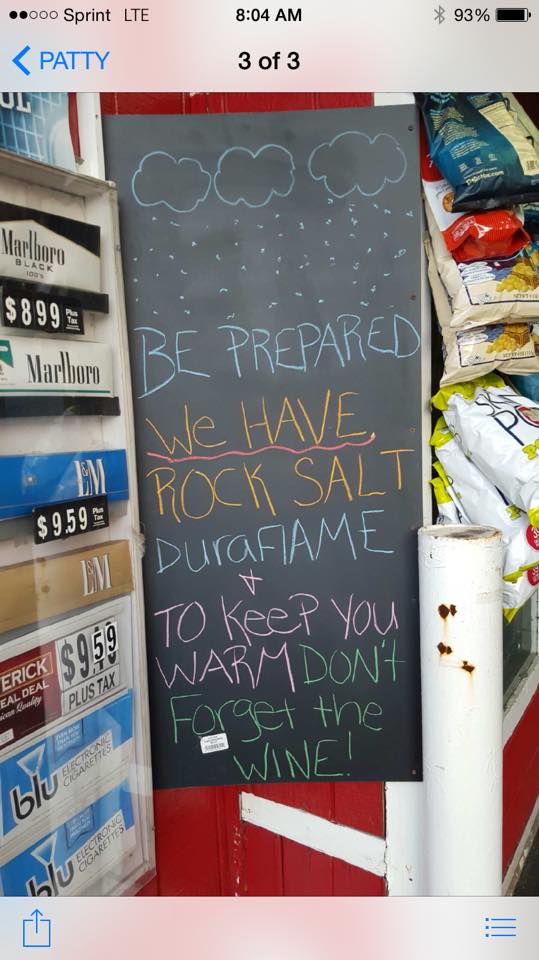 Sprint LTE 8:04 AM 93%
PATTY 3 of 3
BE PREPARED
We HAVE
ROCK SALT
DuraflAME
&
TO KeeP You
WARM DON't
Forget the
WINE!
Marlboro
BLACK
100's
$8.99 Plus Tax
Marlboro
L&M
$9.59 Plus Tax
L&M
$9.59
PLUS TAX
blu ELECTRONIC CIGARETTES
blu ELECTRONIC CIGARETTES